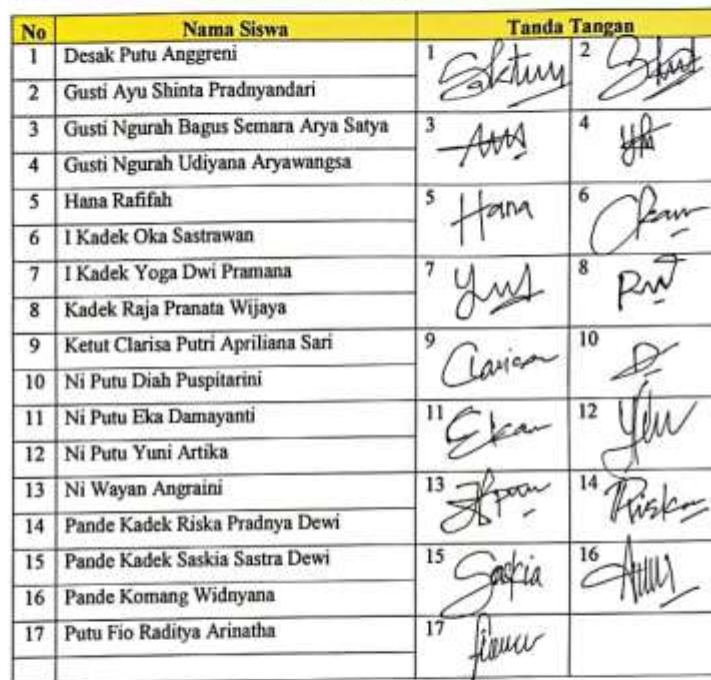 No Nama Siswa Tanda Tangan
1 Desak Putu Anggreni 1 2
2 Gusti Ayu Shinta Pradnyandari
3 Gusti Ngurah Bagus Semara Arya Satya 3 4
4 Gusti Ngurah Udiyana Aryawangsa
5 Hana Rafifah 5 Hana 6
6 I Kadek Oka Sastrawan
7 I Kadek Yoga Dwi Pramana 7 8
8 Kadek Raja Pranata Wijaya
9 Ketut Clarisa Putri Apriliana Sari 9 10
10 Ni Putu Diah Puspitarini
11 Ni Putu Eka Damayanti 11 12
12 Ni Putu Yuni Artika
13 Ni Wayan Angraini 13 14
14 Pande Kadek Riska Pradnya Dewi
15 Pande Kadek Saskia Sastra Dewi 15 Saskia 16
16 Pande Komang Widnyana
17 Putu Fio Raditya Arinatha 17